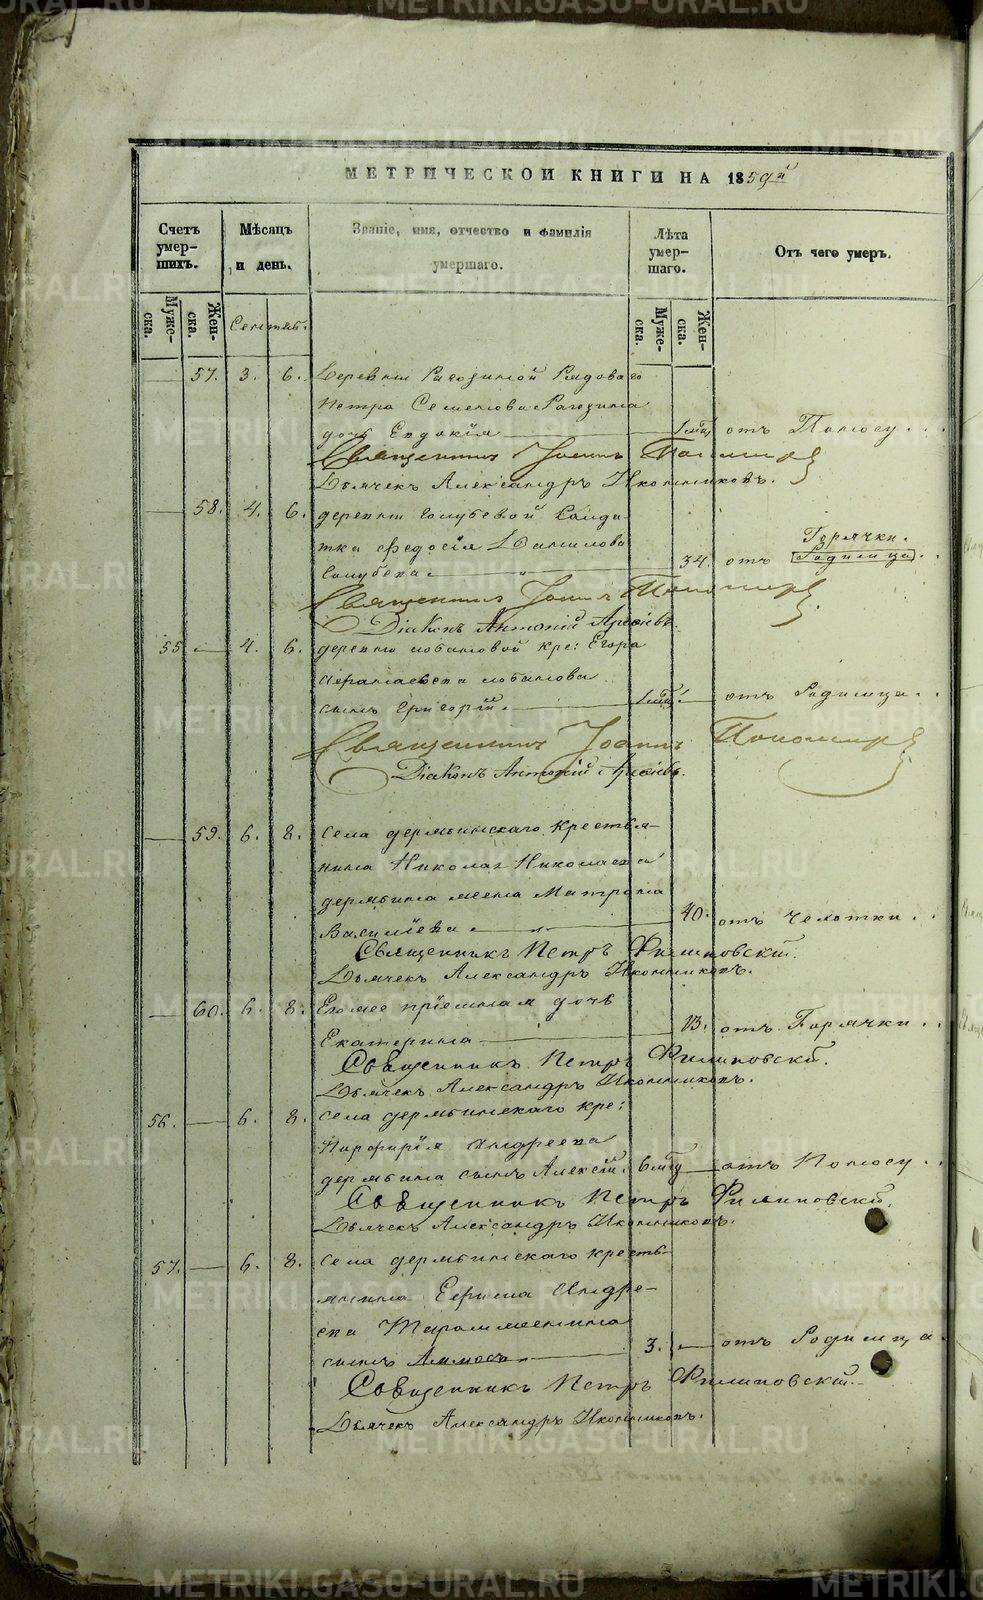 METRIKI.GASO-URAL.RU
МЕТРИЧЕСКОЙ КНИГИ НА 1859й
Счетъ умер- шихъ.
Мѣсяцъ и день.
Званіе, имя, отчество и фамилія умершаго.
Лѣта умер- шаго.
Отъ чего умеръ.
Муже- ска.
Жен- ска.
Сентяб.
Муже- ска.
Жен- ска.
57. 3. 6. Деревни Рагозиной Рядоваго
Петра Семенова Рагозина
дочь Евдокія 1 мѣц отъ Поносу.
Священникъ Іоаннъ
Дьячекъ Александръ Иконниковъ.
58. 4. 6. деревни Голубевой Солдат
ка Федосія Данилова
Горячки.
Голубева 34. отъ Родимца
Священникъ Іоаннъ Пономарев
Діаконъ Антоній
55 4. 6. деревни лобановой кре: Егора
лобанова
сынъ Григорій 1 мѣц отъ Родимца.
Священникъ Іоаннъ Пономарев
Діаконъ Антоній
59. 6. 8. Села дерябинскаго крестья-
нина Николая Николаева
дерябина жена Матрона
Василіева 40. отъ Чахотки
Священникъ Петръ Филиповскій.
Дьячекъ Александръ Иконниковъ.
60. 6. 8. Егоже пріемная дочь
Екатерина 13. отъ Горячки
Священникъ Петръ Филиповскій.
Дьячекъ Александръ Иконниковъ.
56. 6. 8. Села дерябинскаго кре:
Порфирія Андреева
дерябина сынъ Алексій. 6 мѣц отъ Поносу
Священникъ Петръ Филиповскій.
Дьячекъ Александръ Иконниковъ.
57. 6. 8. Села дерябинскаго кресть-
янина Ефима Андре-
ева
сынъ Аммосъ 3. отъ Родимца
Священникъ Петръ Филиповскій.
Дьячекъ Александръ Иконниковъ.